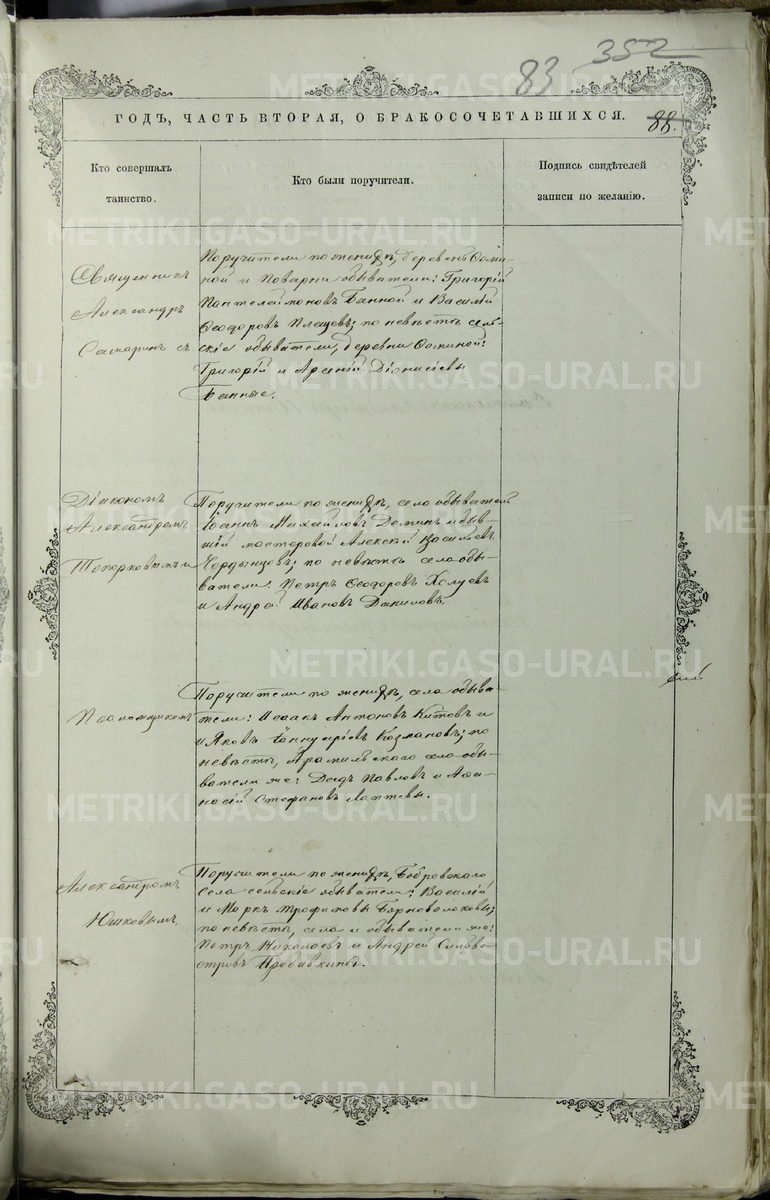 83 352
ГОДЪ, ЧАСТЬ ВТОРАЯ, О БРАКОСОЧЕТАВШИХСЯ.
88.
Кто совершалъ
таинство.
Кто были поручители.
Подпись свидѣтелей
записи по желанію.
Священникъ
Александръ
Сапаринъ съ
Поручители по женихѣ, деревень
ной и Поварни обыватели: Григорій
Пантелеймоновъ Банной и Василій
Ѳеодоровъ Плещовъ; по невѣстѣ сель-
скіе обыватели, деревни
Григорій и Арсеній Діонисіевы
Банные.
Діакономъ
Александромъ
Топорковымъ и
Поручители по женихѣ, села обыватели
Іоаннъ Михайловъ Деминъ и быв-
шій мастеровой Алексѣй Васильевъ
Чердынцовъ; по невѣстѣ села обы-
ватели: Петръ Ѳеодоровъ Холуевъ
и Андрей Ивановъ Даниловъ.
Псаломщикомъ
Поручители по женихѣ, села обыва-
тели: Исаакъ Антоновъ Китовъ и
Яковъ Іаннуаріевъ Козмановъ; по
невѣстѣ, Арамильскаго села обы-
ватели же: Давидъ Павловъ и Аѳа-
насій Стефановъ Лаптевы.
Александромъ
Юшковымъ.
Поручители по женихѣ, Бобровскаго
села сельскіе обыватели: Василій
и Маркъ Трофимовы Бярноволоковы;
по невѣстѣ, села и обыватели же:
Петръ Николаевъ и Андрей Сильве-
стровъ
METRIKI.GASO-URAL.RU